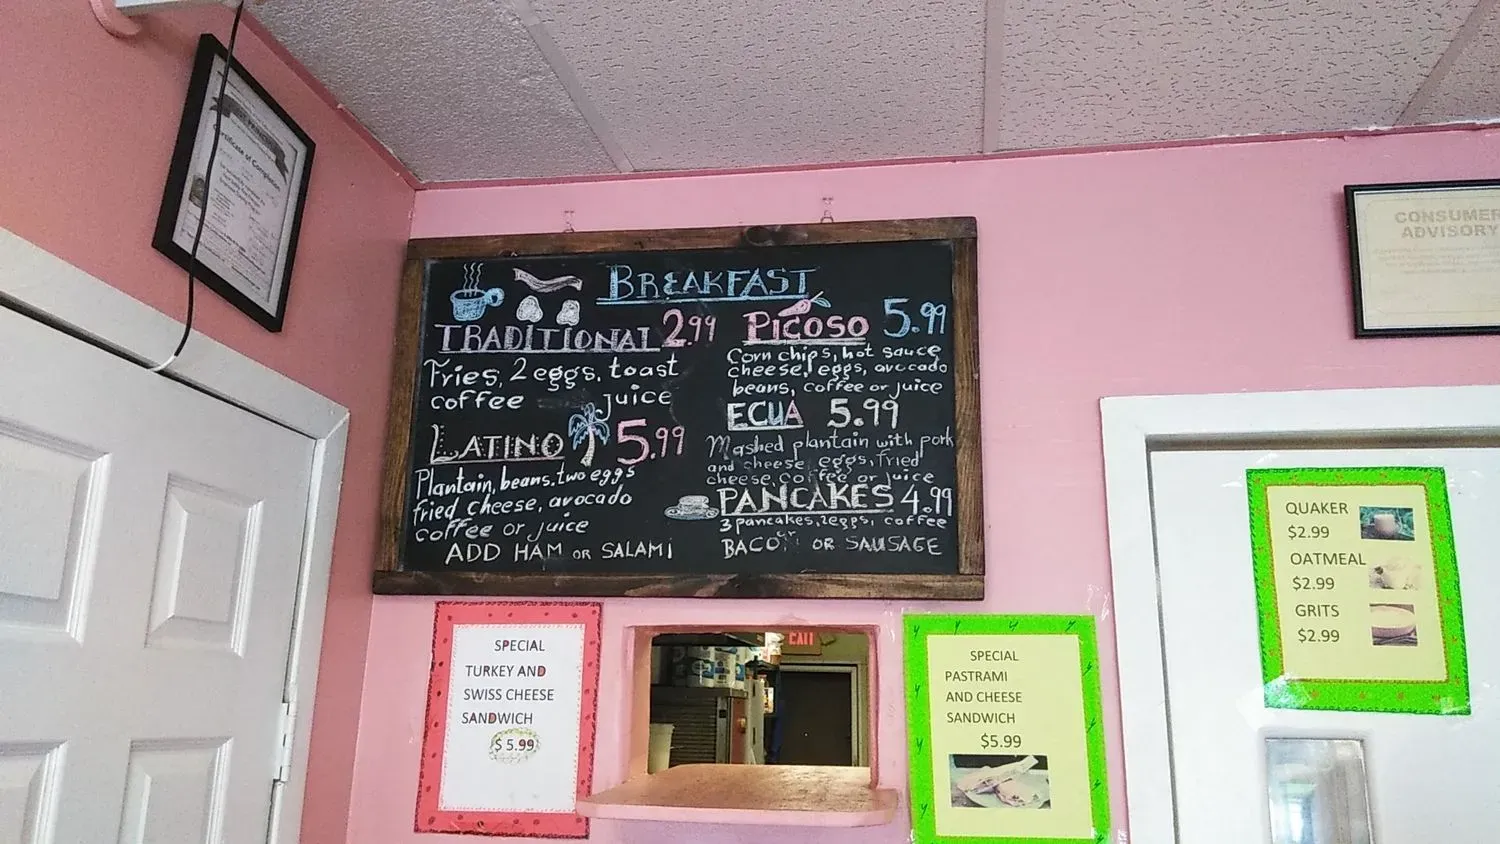 Certificate of Completion
BREAKFAST
TRADITIONAL 2.99
Fries, 2 eggs, toast
coffee juice
LATINO 5.99
Plantain, beans, two eggs
fried cheese, avocado
coffee or juice
ADD HAM OR SALAMI
PICOSO 5.99
Corn chips, hot sauce
cheese, eggs, avocado
beans, coffee or juice
ECUA 5.99
Mashed plantain with pork
and cheese, eggs, fried
cheese, coffee or juice
PANCAKES 4.99
3 pancakes, 2 eggs, coffee
or
BACON OR SAUSAGE
SPECIAL
TURKEY AND
SWISS CHEESE
SANDWICH
$ 5.99
EXIT
SPECIAL
PASTRAMI
AND CHEESE
SANDWICH
$5.99
CONSUMER
ADVISORY
QUAKER
$2.99
OATMEAL
$2.99
GRITS
$2.99